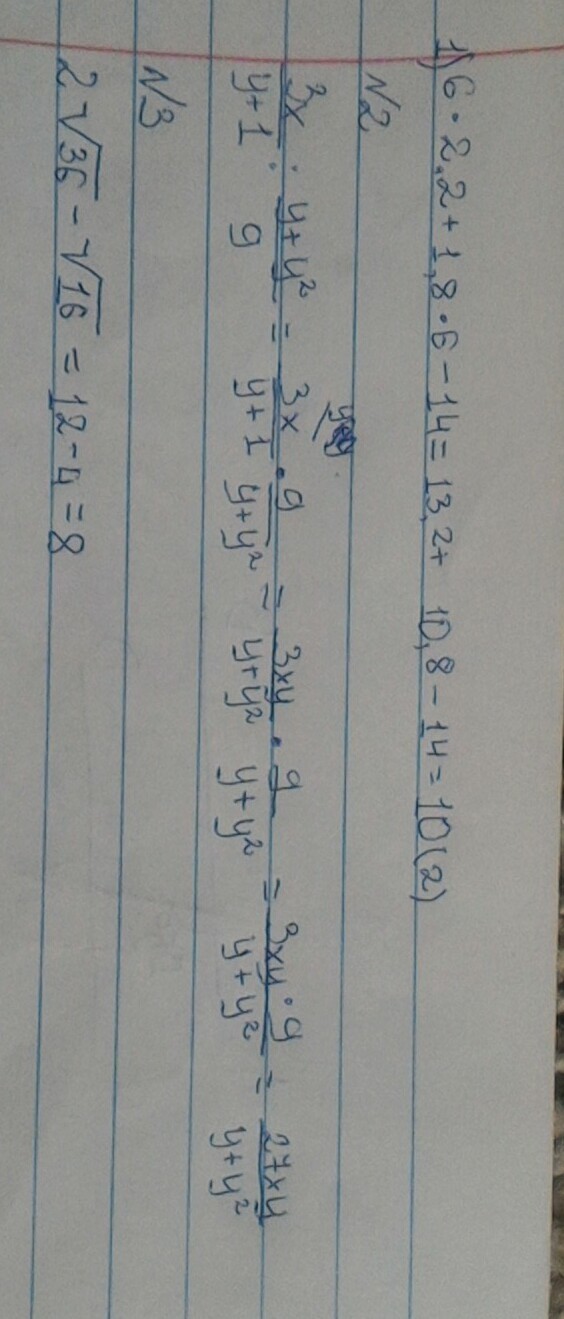 1) 6 · 2,2 + 1,8 · 6 - 14 = 13,2 + 10,8 - 14 = 10 (2)
N2
3x/y+1 : y+y²/9 = 3x/y+1 · 9/y+y² = 3xy/y+y² · 9/y+y² = 3xy·9/y+y² = 27xy/y+y²
N3
2√36 - √16 = 12 - 4 = 8